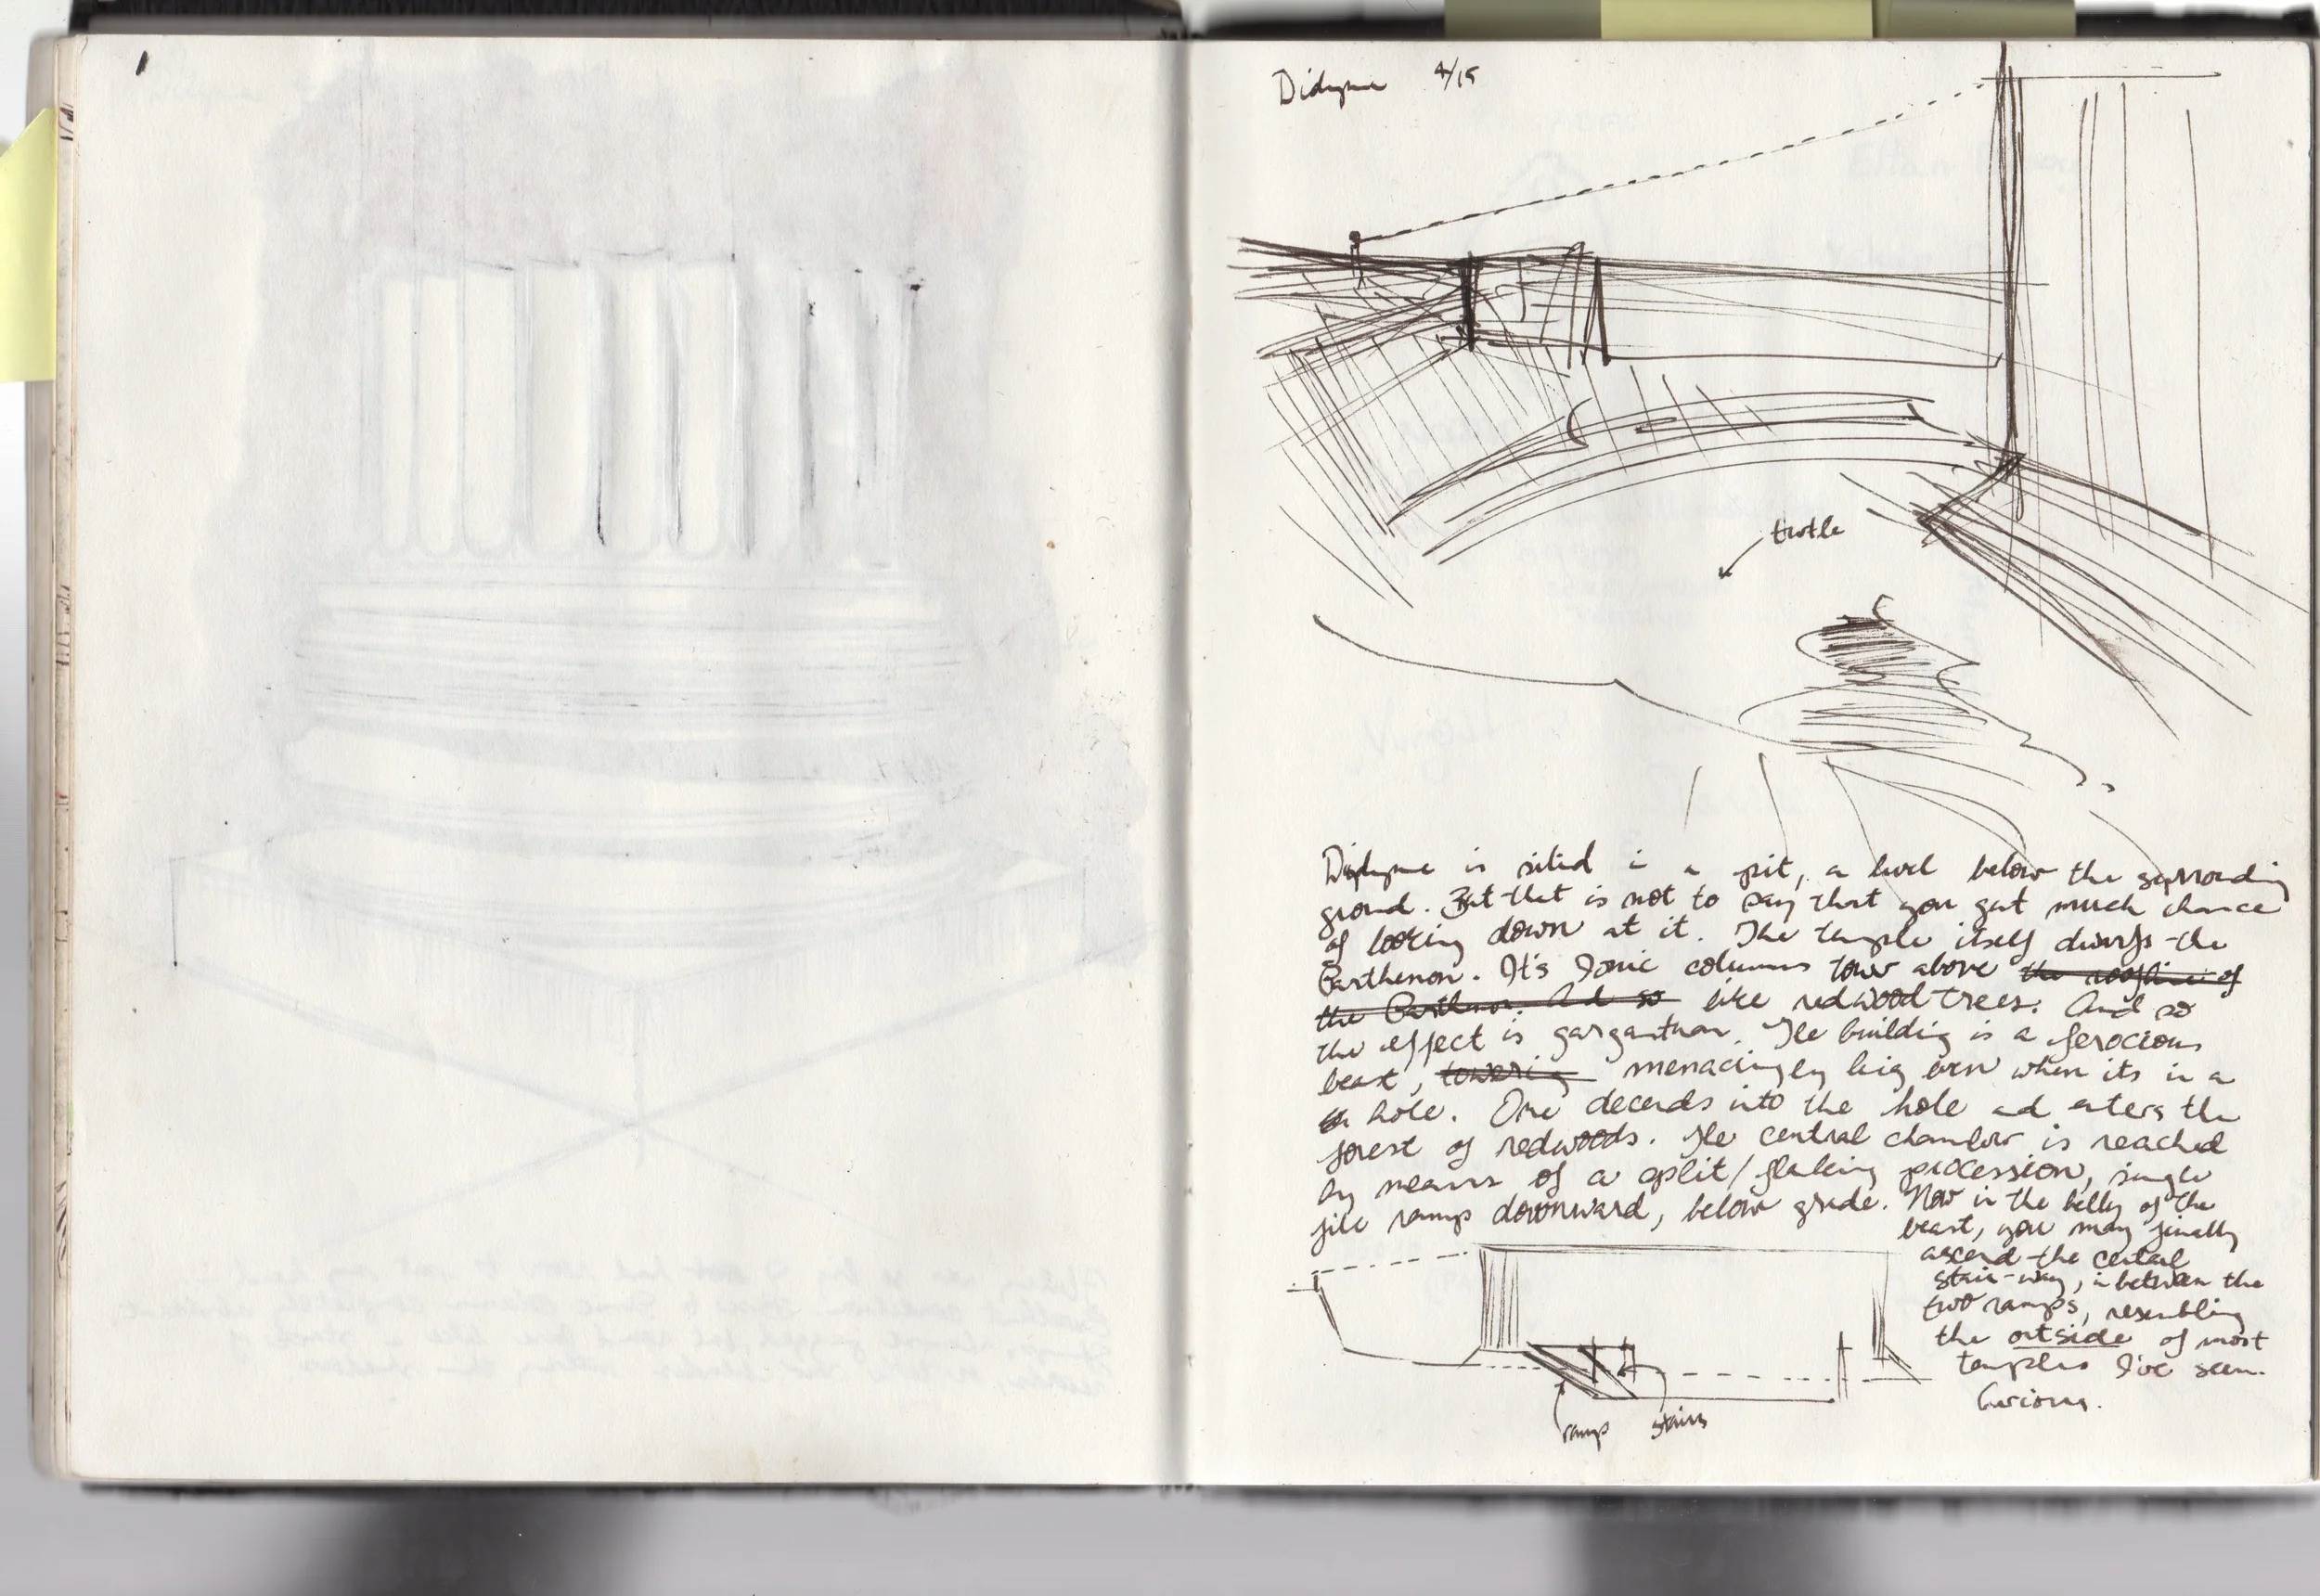 Didyme 4/15
turtle
Didyme is sited in a pit, a level below the surrounding
ground. But that is not to say that you get much chance
of looking down at it. The temple itself dwarfs the
Parthenon. It's Ionic columns tower above the roofline of
the Parthenon. And so like redwood trees. And so
the effect is gargantuan. The building is a ferocious
beast, towering menacingly big even when its in a
a hole. One decends into the hole and enters the
forest of redwoods. The central chamber is reached
by means of a split/flaking procession, single
file ramp downward, below grade. Now in the belly of the
beast, you may finally
ascend the central
stair-way, in between the
two ramps, resembling
the outside of most
temples I've seen.
Curious.
ramp stairs